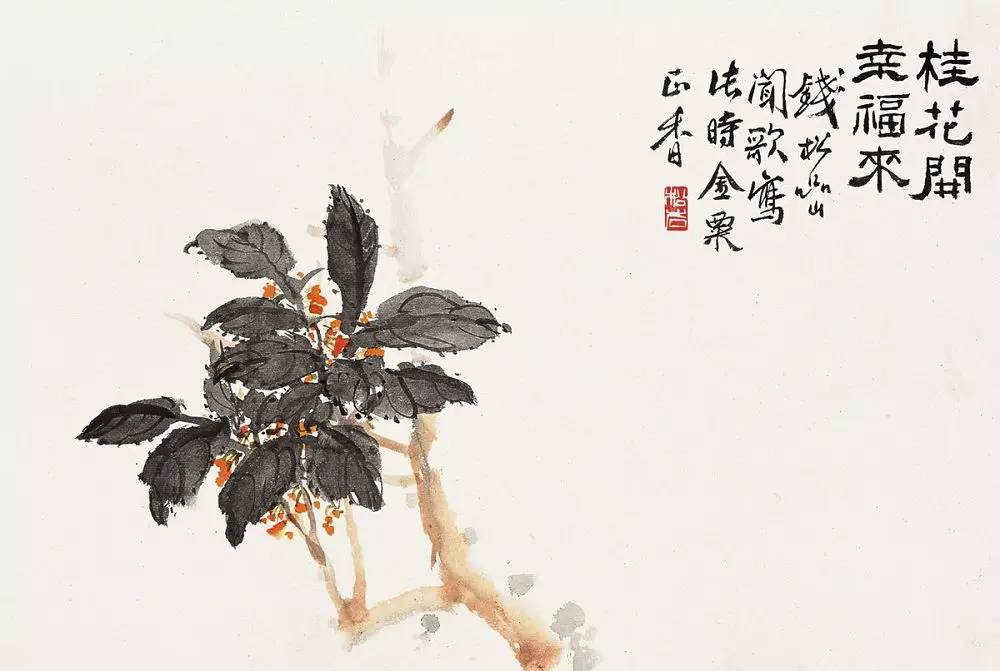 桂花開
幸福來
錢松嵒
聞歌寫
此時金粟
正香
松嵒